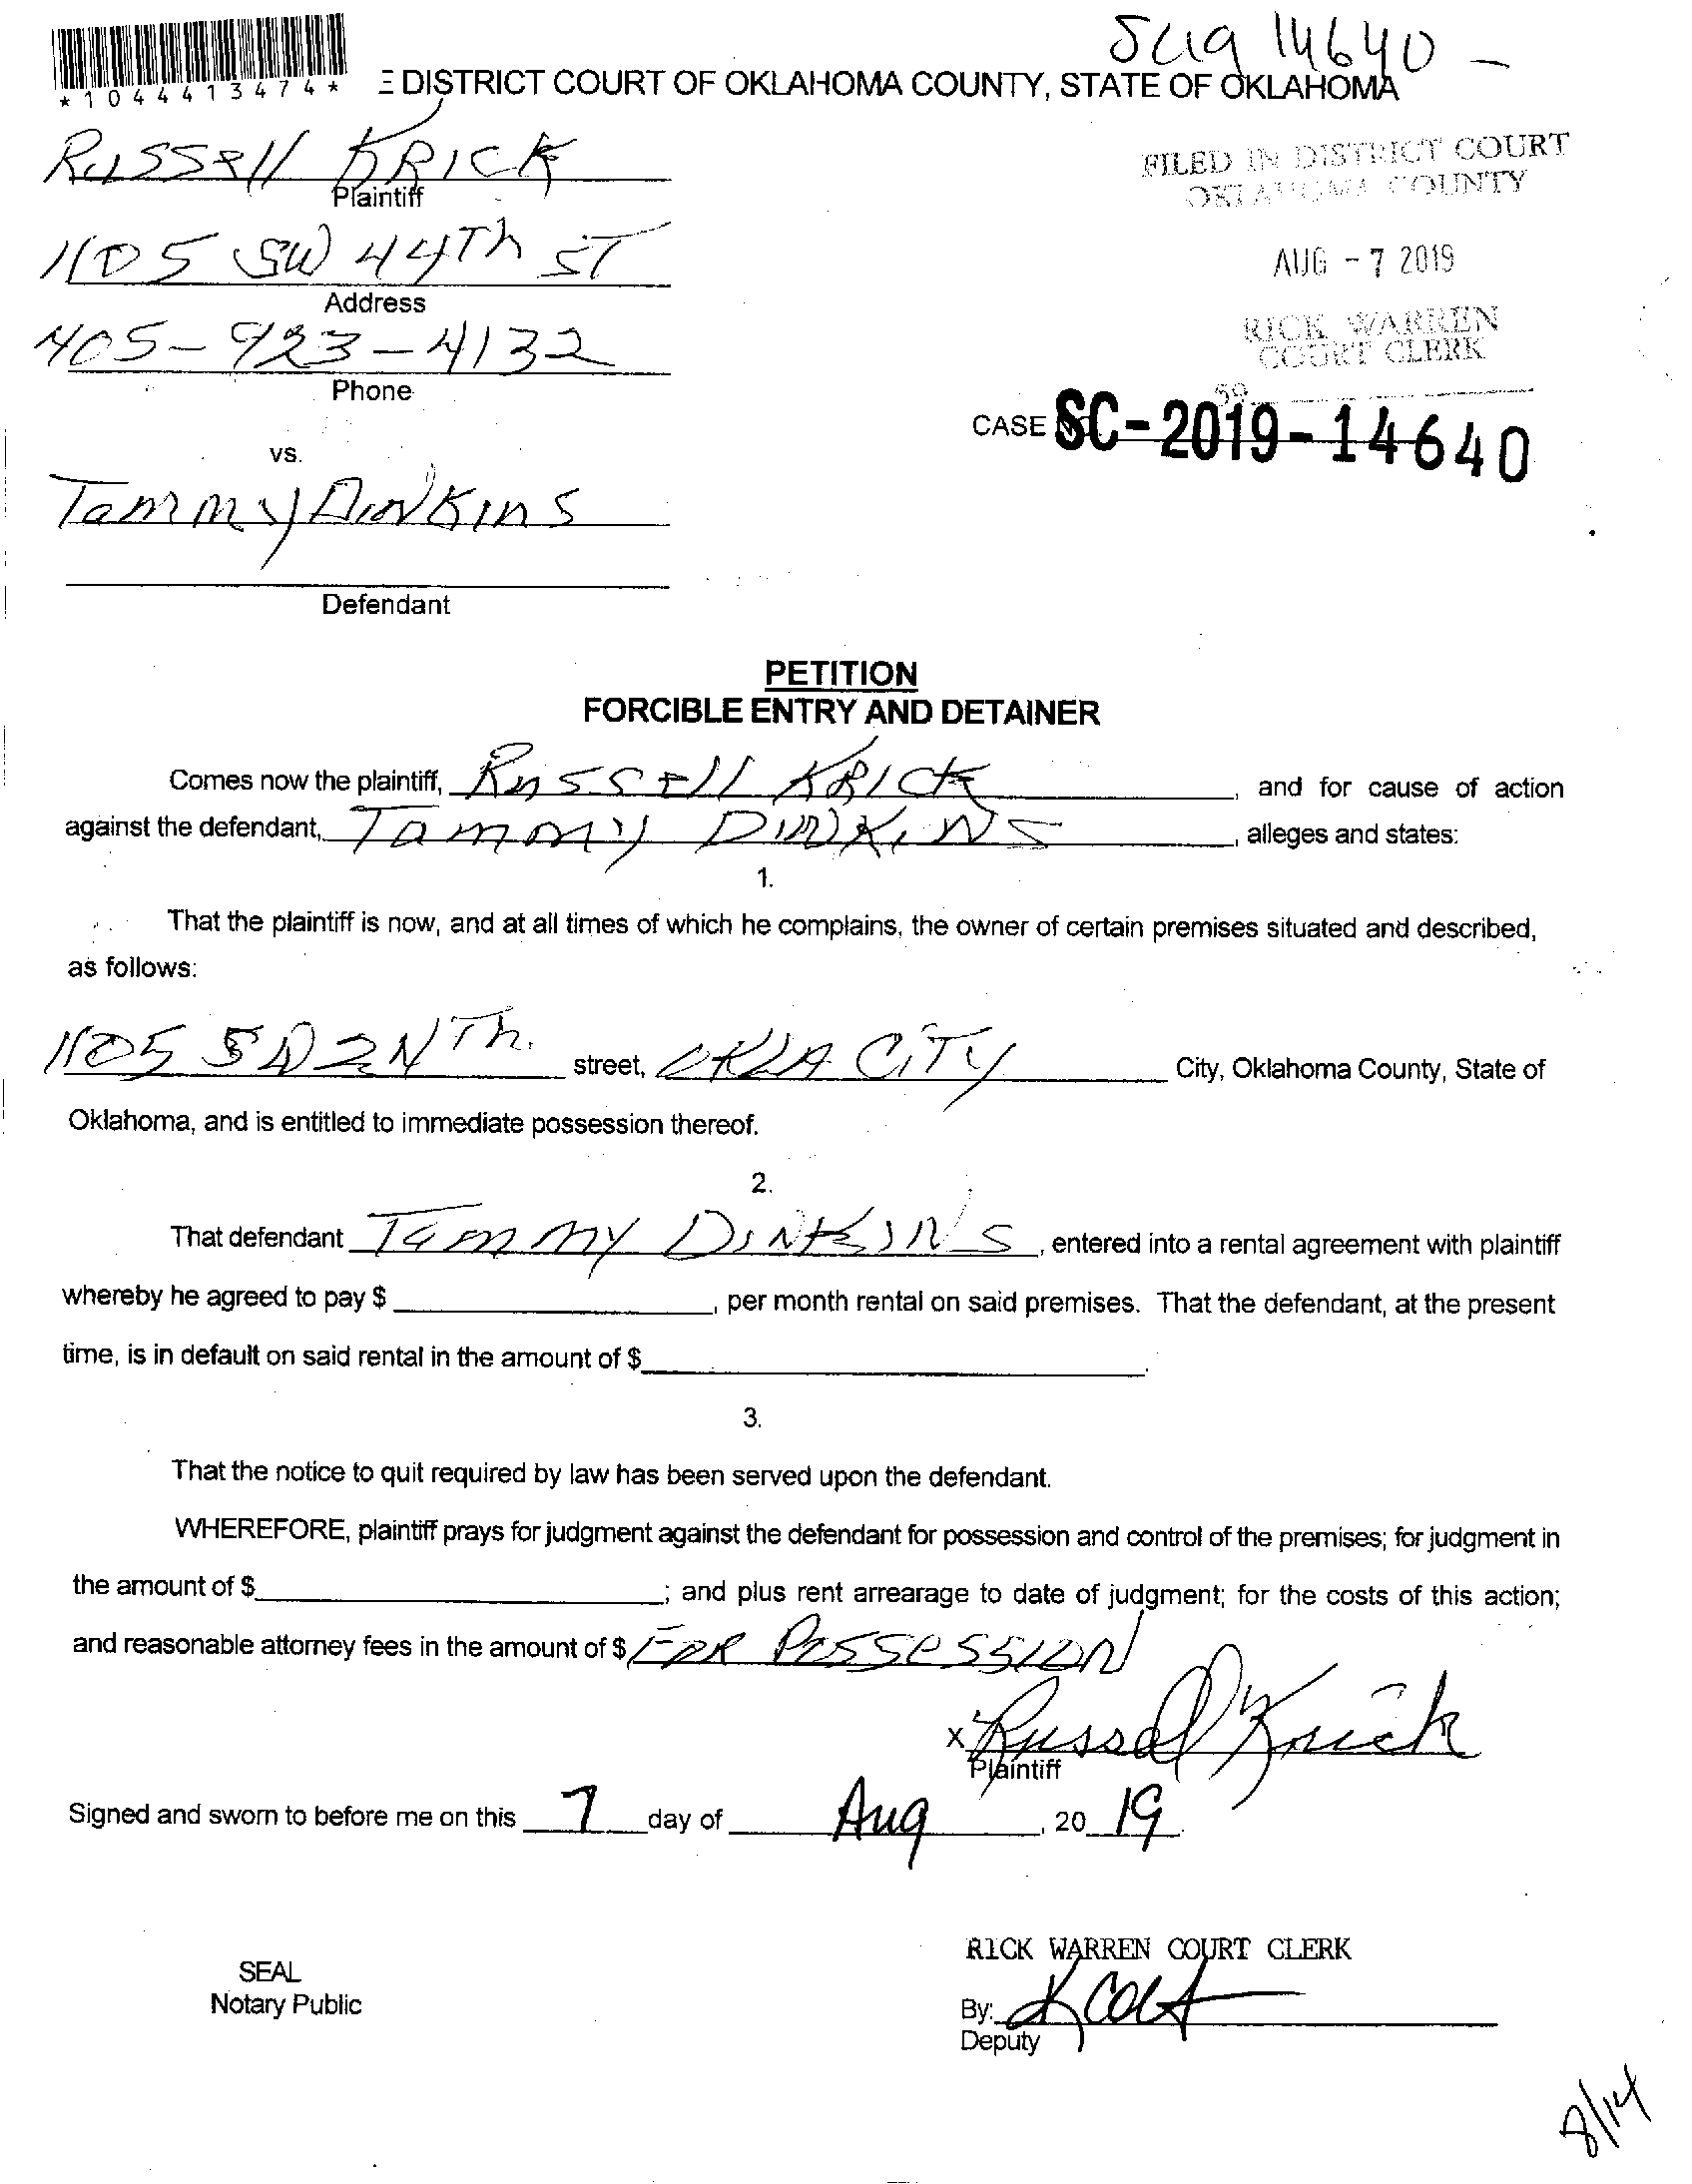 *1044413474*
DISTRICT COURT OF OKLAHOMA COUNTY, STATE OF OKLAHOMA
14640 -
RUSSELL KRICK
Plaintiff
FILED IN DISTRICT COURT
OKLAHOMA COUNTY
1105 SW 44Th ST
Address
AUG - 7 2019
405-923-4132
Phone
RICK WARREN
COURT CLERK
59
CASE SC-2019-14640
vs.
Tammy DINKINS
Defendant
PETITION
FORCIBLE ENTRY AND DETAINER
Comes now the plaintiff, RUSSELL KRICK, and for cause of action
against the defendant, Tammy DINKINS, alleges and states:
1.
That the plaintiff is now, and at all times of which he complains, the owner of certain premises situated and described,
as follows:
1105 street, OKLA CITY City, Oklahoma County, State of
Oklahoma, and is entitled to immediate possession thereof.
2.
That defendant Tammy DINKINS, entered into a rental agreement with plaintiff
whereby he agreed to pay $ , per month rental on said premises. That the defendant, at the present
time, is in default on said rental in the amount of $ .
3.
That the notice to quit required by law has been served upon the defendant.
WHEREFORE, plaintiff prays for judgment against the defendant for possession and control of the premises; for judgment in
the amount of $ ; and plus rent arrearage to date of judgment; for the costs of this action;
and reasonable attorney fees in the amount of $ FOR POSSESSION
x Russell Krick
Plaintiff
Signed and sworn to before me on this 7 day of Aug, 20 19.
RICK WARREN COURT CLERK
SEAL
Notary Public
By:
Deputy
8/14